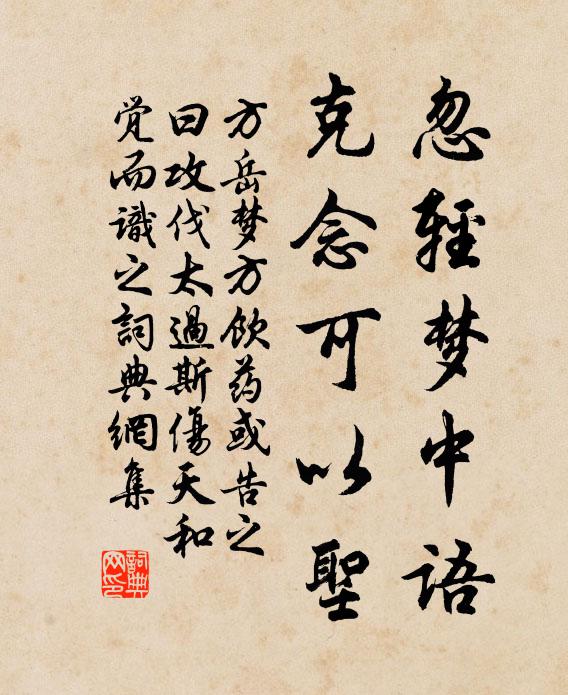 忽輕梦中语
克念可以聖
方岳梦方飲药或告之
曰攻伐太過斯傷天和
觉而識之詞典網集
詞典
网印